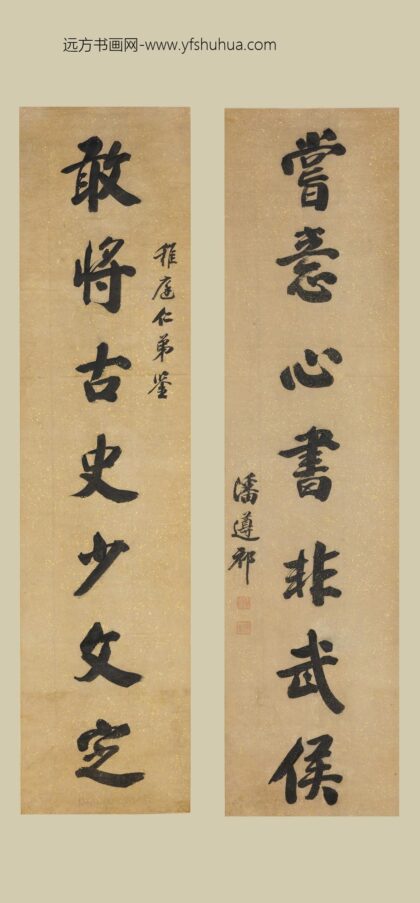 远方书画网-www.yfshuhua.com
敢將古史少文定
稚庭仁弟鑒
嘗意心書非武侯
潘遵祁